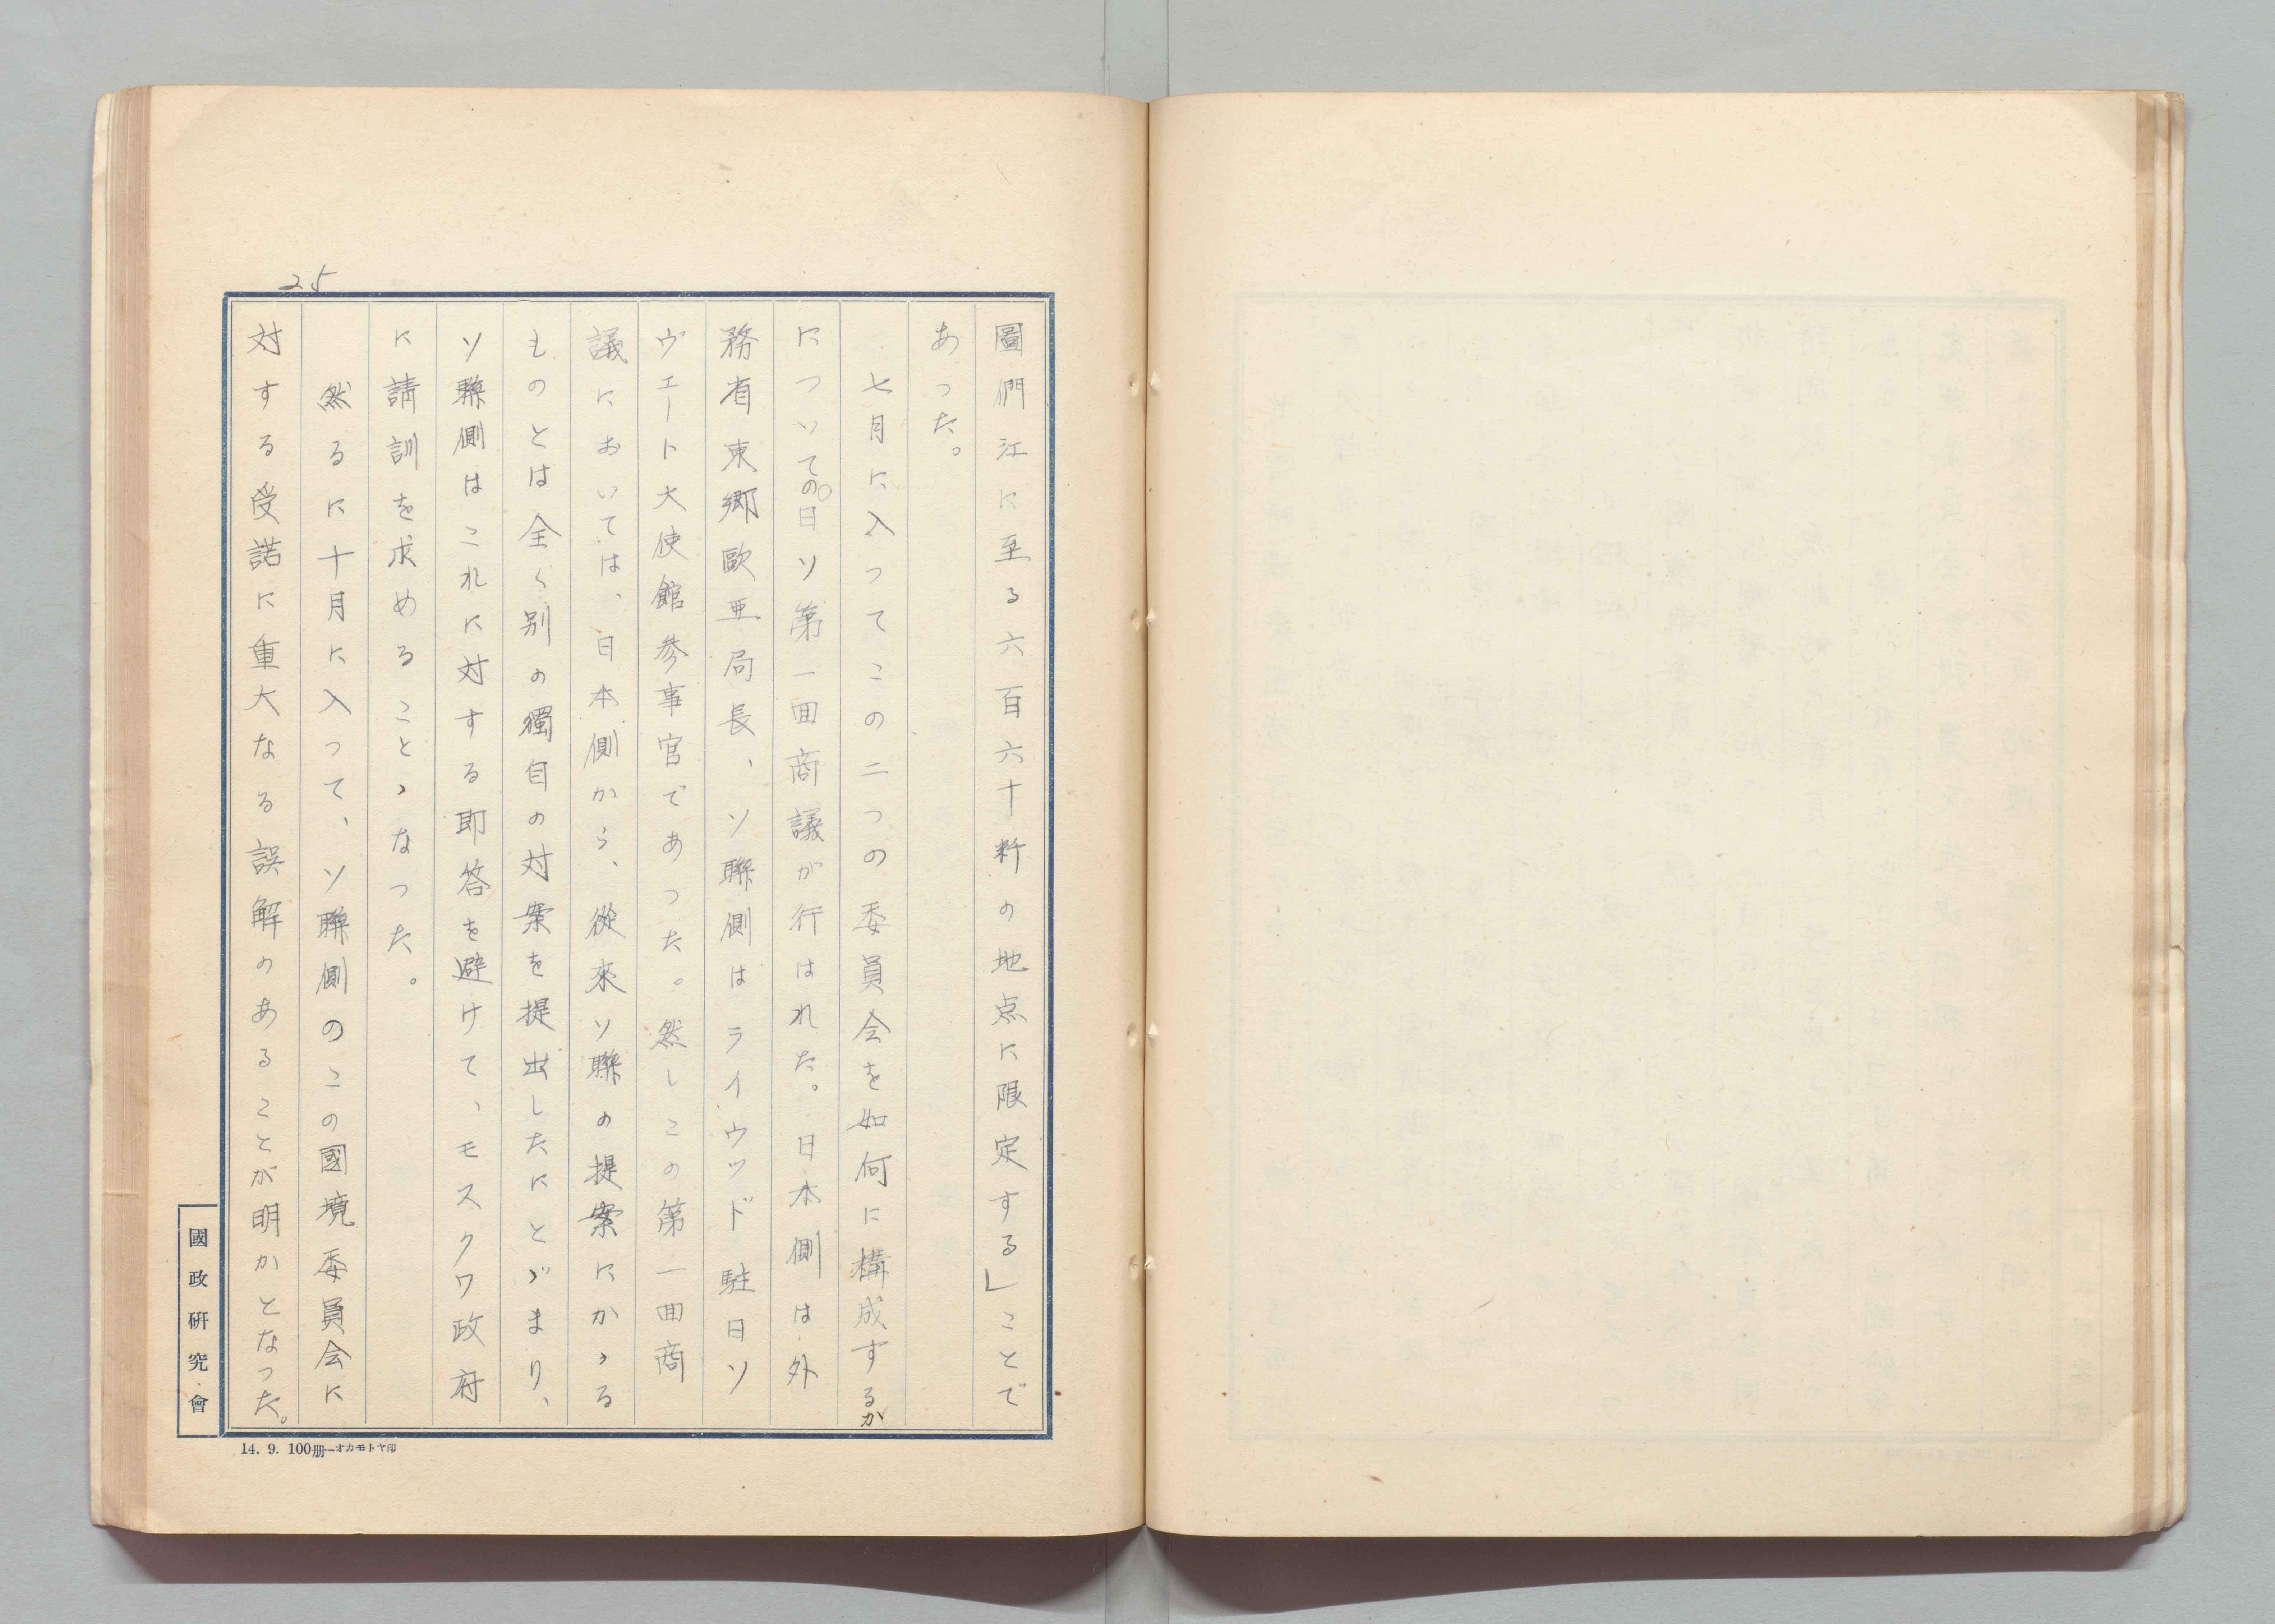 25
圖們江に至る六百六十粁の地点に限定する」ことで
あった。
七月に入ってこの二つの委員会を如何に構成するか
についての日ソ第一回商議が行はれた。日本側は外
務省東郷歐亜局長、ソ聯側はライウッド駐日ソ
ヴェート大使館参事官であった。然しこの第一回商
議においては、日本側から、從來ソ聯の提案にかゝる
ものとは全く別の獨自の対案を提出したにとゞまり、
ソ聯側はこれに対する即答を避けて、モスクワ政府
に請訓を求めることゝなった。
然るに十月に入って、ソ聯側のこの國境委員会に
対する受諾に重大なる誤解のあることが明かとなった。
國政研究會
14. 9. 100冊—オカモトヤ印